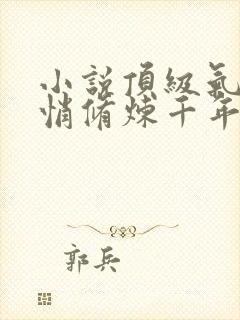 小說頂級氣
悄脩煉千年
郭兵